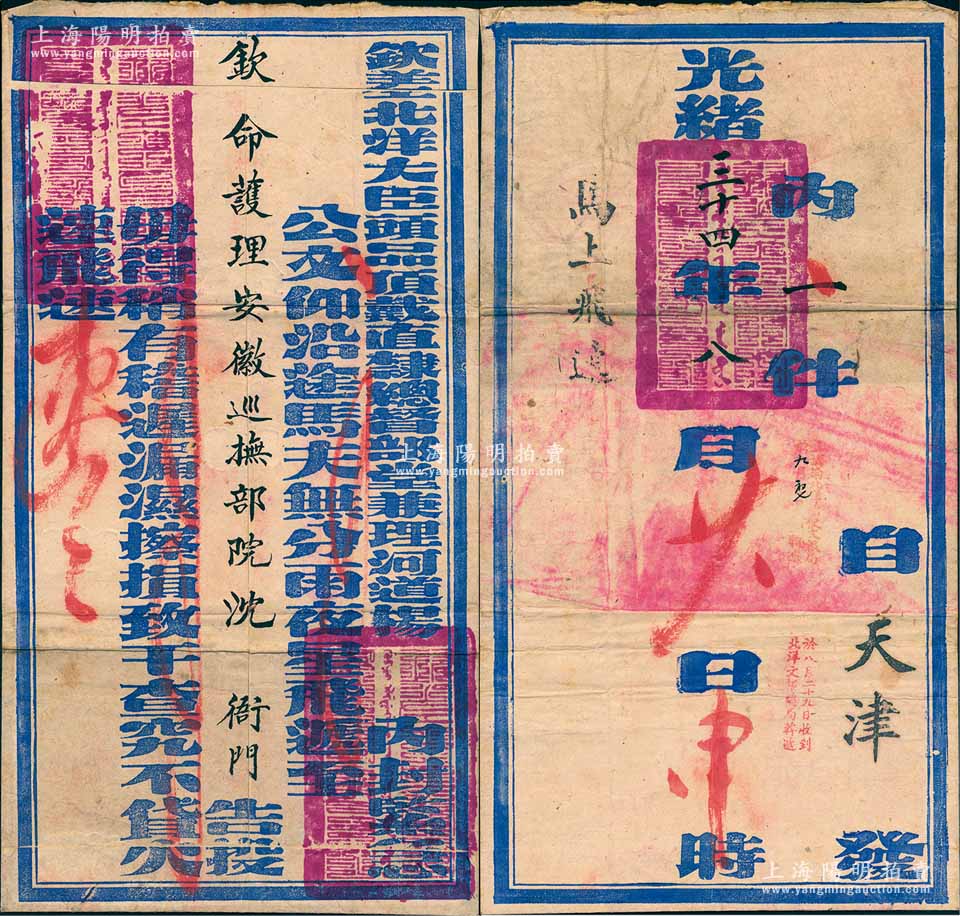 上海陽明拍賣
www.yangmingauction.com
欽差北洋大臣頭品頂戴直隸總督部堂兼理河道楊
內封緊急
公文仰沿途馬夫無分雨夜星飛遞至
欽命護理安徽巡撫部院沈 衙門
告投
毋得稍有稽遲漏濕擦損致干查究不貸火
速飛速
上海陽明拍賣
www.yangmingauction.com
自天津發
內一件
於八月二十九日收到
北洋文報總局轉遞
光緒三十四年八月 日申時
馬上飛遞
上海陽明拍賣
www.yangmingauction.com